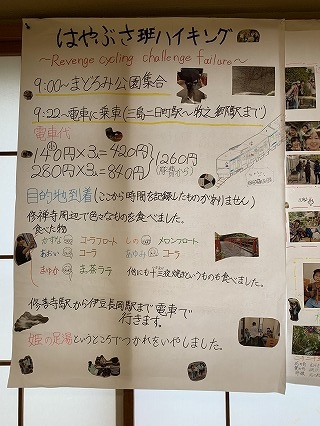 はやぶさ班ハイキング
～Revenge cycling challenge failure～
9:00～まどろみ公園集合
9:22～電車に乗車(三島二日町駅～牧之郷駅まで)
電車代
140円×3人=420円
280円×3人=840円
1260円
目的地到着(ここから時間を記録したものがありません)
修禅寺周辺で色々なものを食べました。
食べた物
かずな コーラフロート しの メロンフロート
あおい コーラ あゆみ コーラ
まゆか ま茶ラテ 他にも十三夜焼きというものも食べました。
修善寺駅から伊豆長岡駅まで電車で
行きます。
姫の足湯というところでつかれをいやしました。